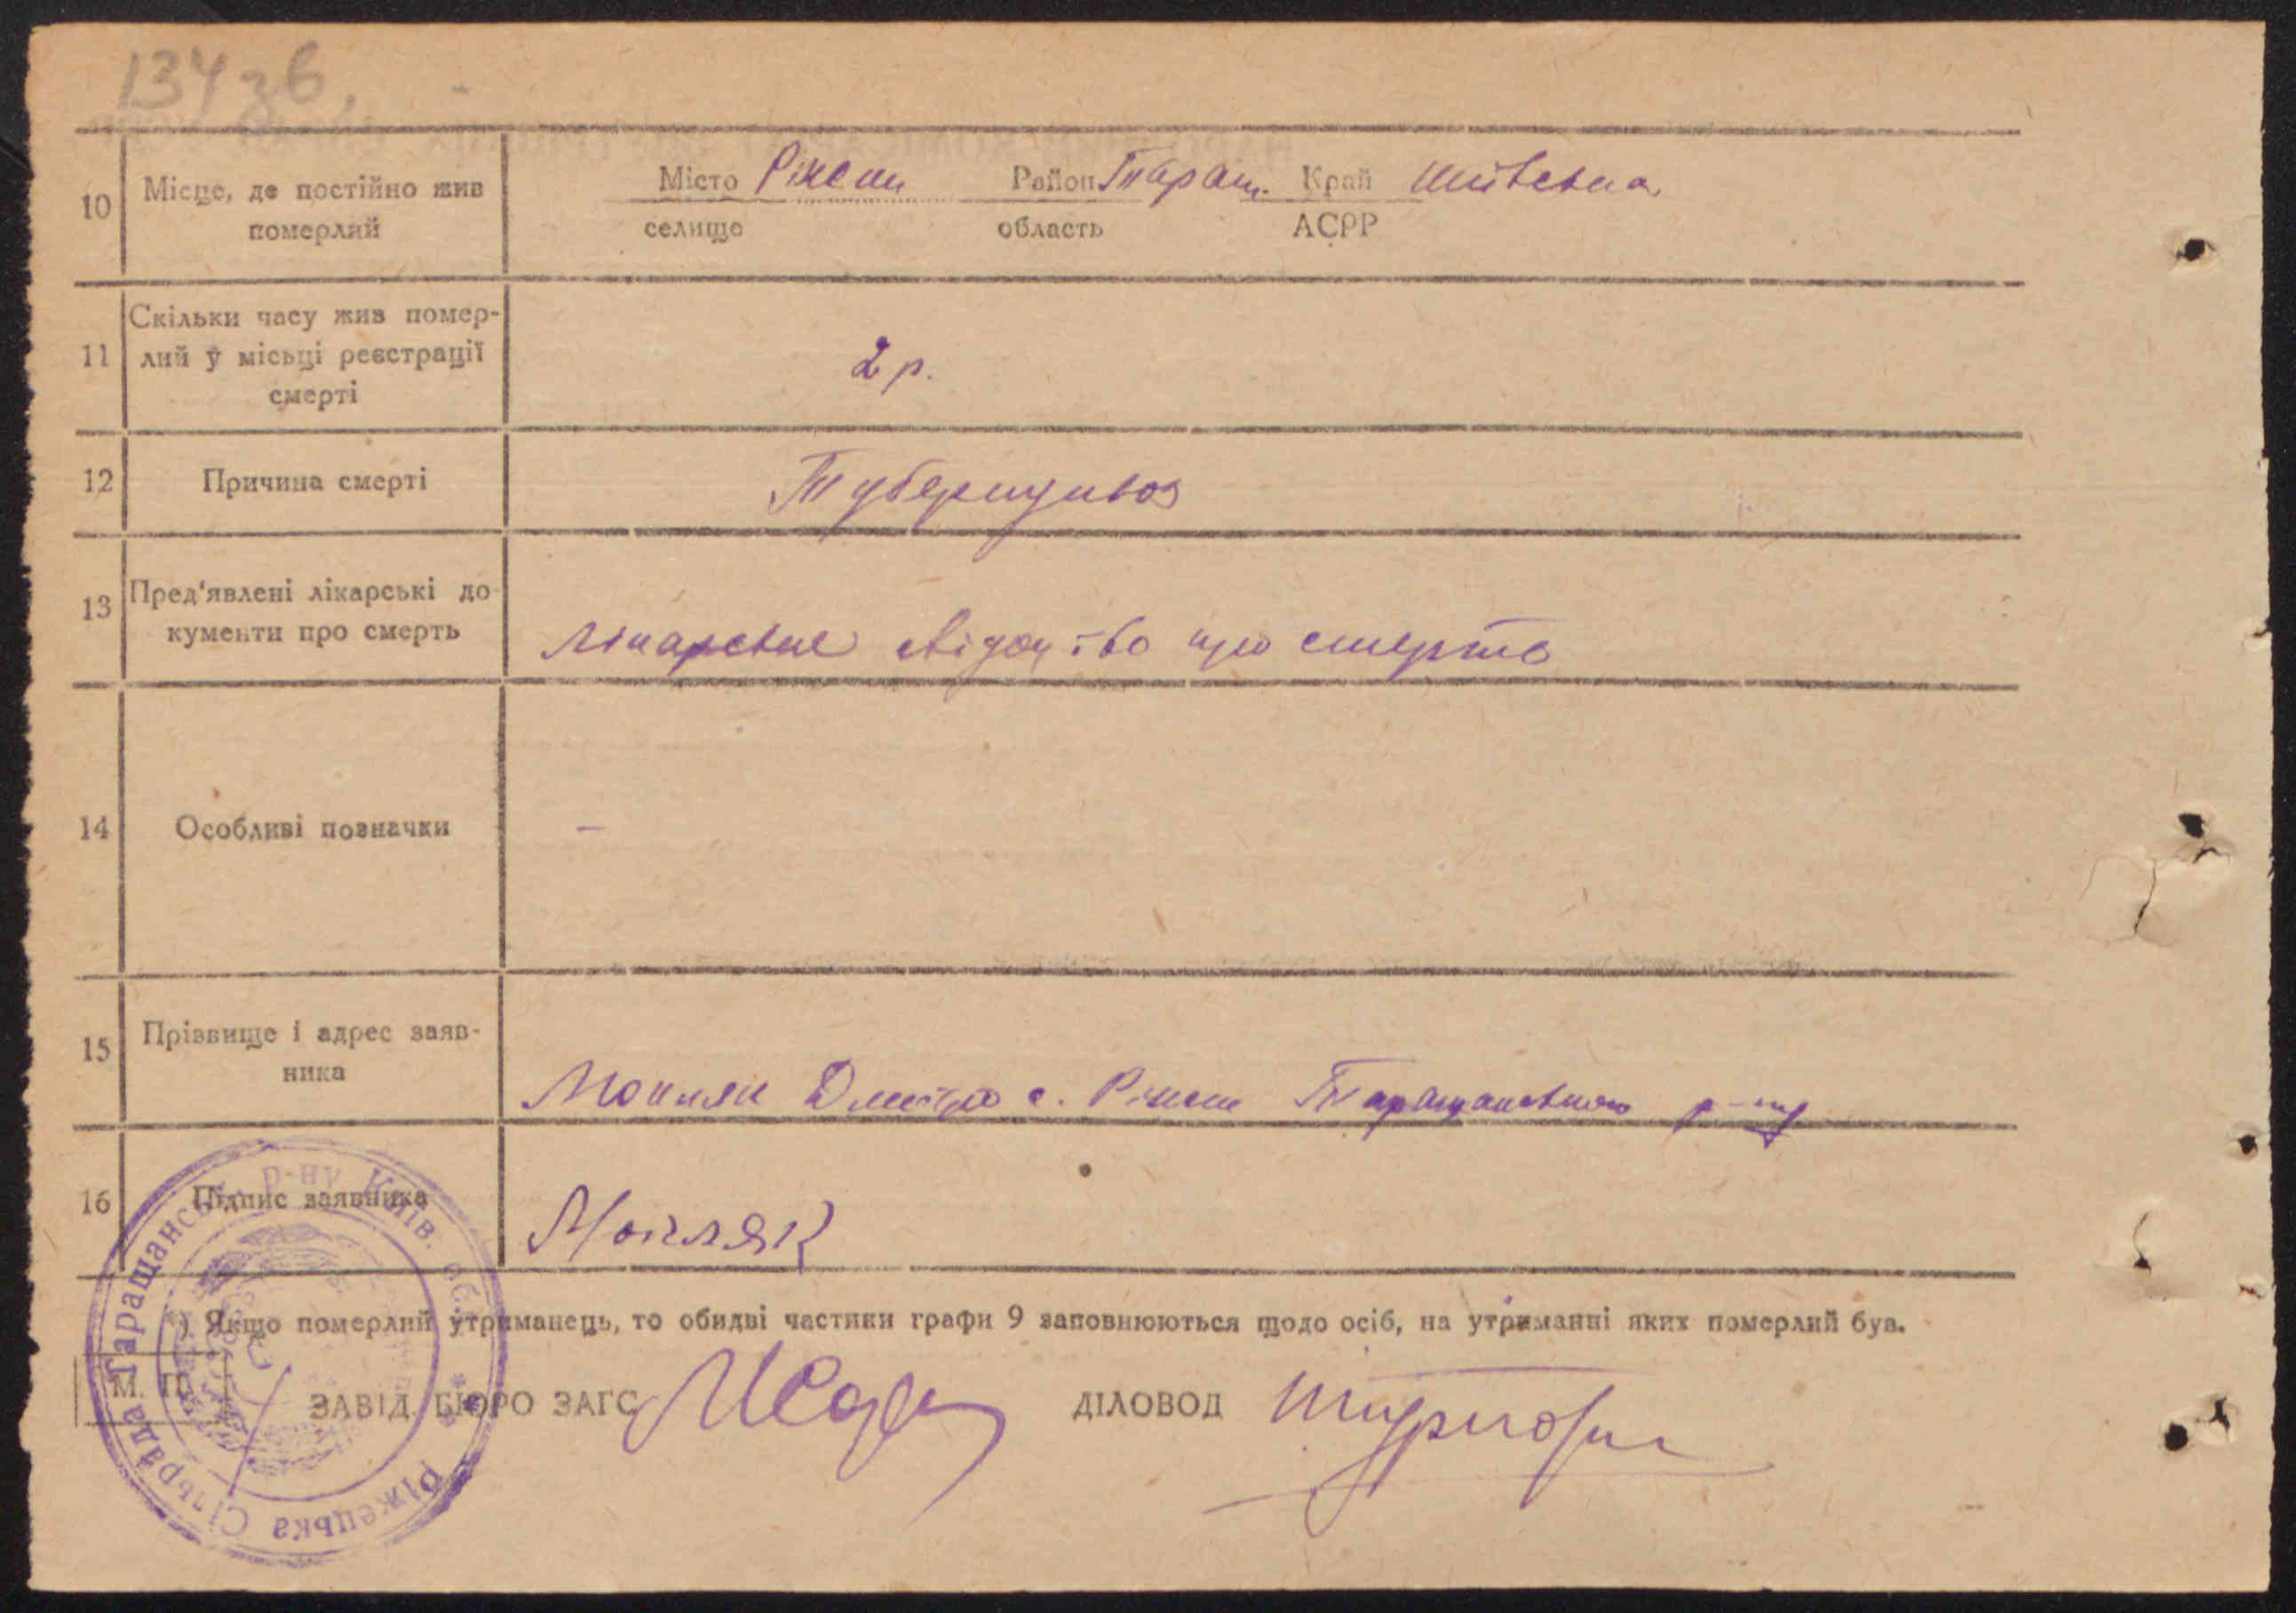 134 зв.
10 Місце, де постійно жив померлий
Місто Ріжки Район Тараш. Край Київська
селище область АСРР
11 Скільки часу жив помер-
лий у місьці реєстрації
смерті
2 р.
12 Причина смерті
Туберкульоз
13 Пред'явлені лікарські до-
кументи про смерть
Лікарське свідоцтво про смерть
14 Особливі позначки
–
15 Прізвище і адрес заяв-
ника
Дмитро с. Ріжки Таращанського р-ну
16 Підпис заявника
*) Якщо померлий утриманець, то обидві частини графи 9 заповнюються щодо осіб, на утриманні яких померлий був.
М. П.
ЗАВІД. БЮРО ЗАГС
ДІЛОВОД
Ріжецька Сільрада Таращанськ. р-ну Київ. обл.